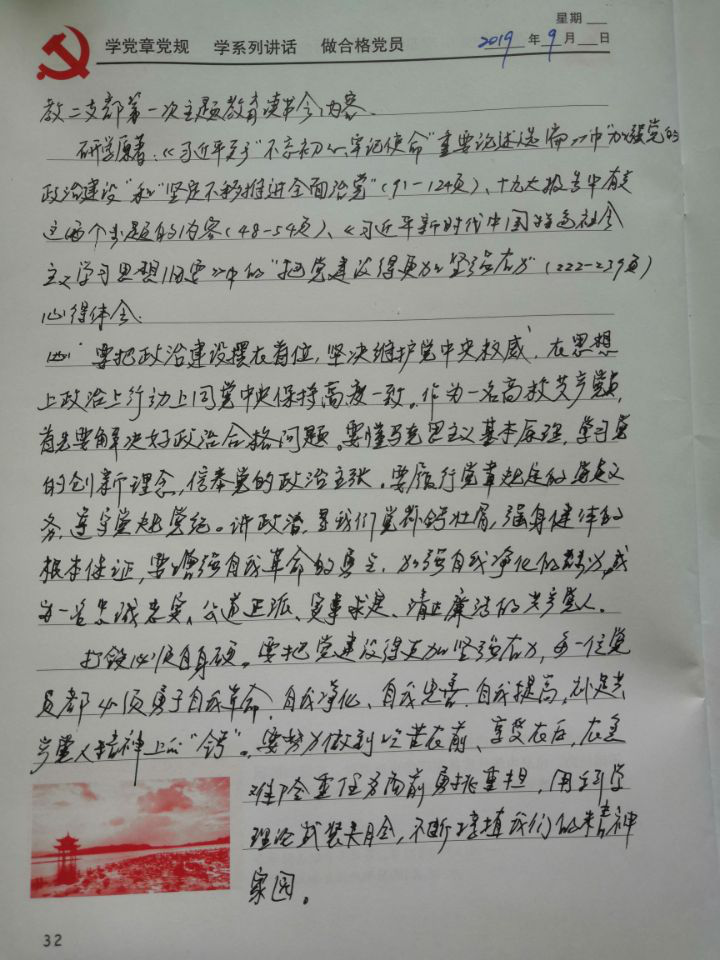 星期
学党章党规 学系列讲话 做合格党员
2019 年 9 月 日
教二支部第一次主题教育读书会内容.
研学原著:《习近平关于"不忘初心、牢记使命"重要论述选编》中"加强党的
政治建设"和"坚定不移推进全面治党"(91-124页)、十九大报告中有关
这两个专题的内容(48-54页)、《习近平新时代中国特色社会
主义学习思想纲要》中的"把党建设得更加坚强有力"(222-239页)
心得体会:
要把政治建设摆在首位,坚决维护党中央权威,在思想
上政治上行动上同党中央保持高度一致。作为一名高教共产党员,
首先要解决好政治合格问题。要懂马克思主义基本原理,学习党
的创新理念,信奉党的政治主张。要履行党章规定的党员义
务,遵守党规党纪。讲政治,是我们党补钙壮骨,强身健体的
根本保证,要增强自我革命的勇气,加强自我净化的 成
为一名忠诚老实、公道正派、实事求是、清正廉洁的共产党人。
打铁必须自身硬。要把党建设得更加坚强有力,每一位党
员都必须勇于自我革命,自我净化、自我完善、自我提高,补足共
产党人精神上的"钙"。要努力做到吃苦在前、享受在后,在急
难险重任务面前勇挑重担,用科学
理论武装头脑,不断培植我们的精神
家园。
32